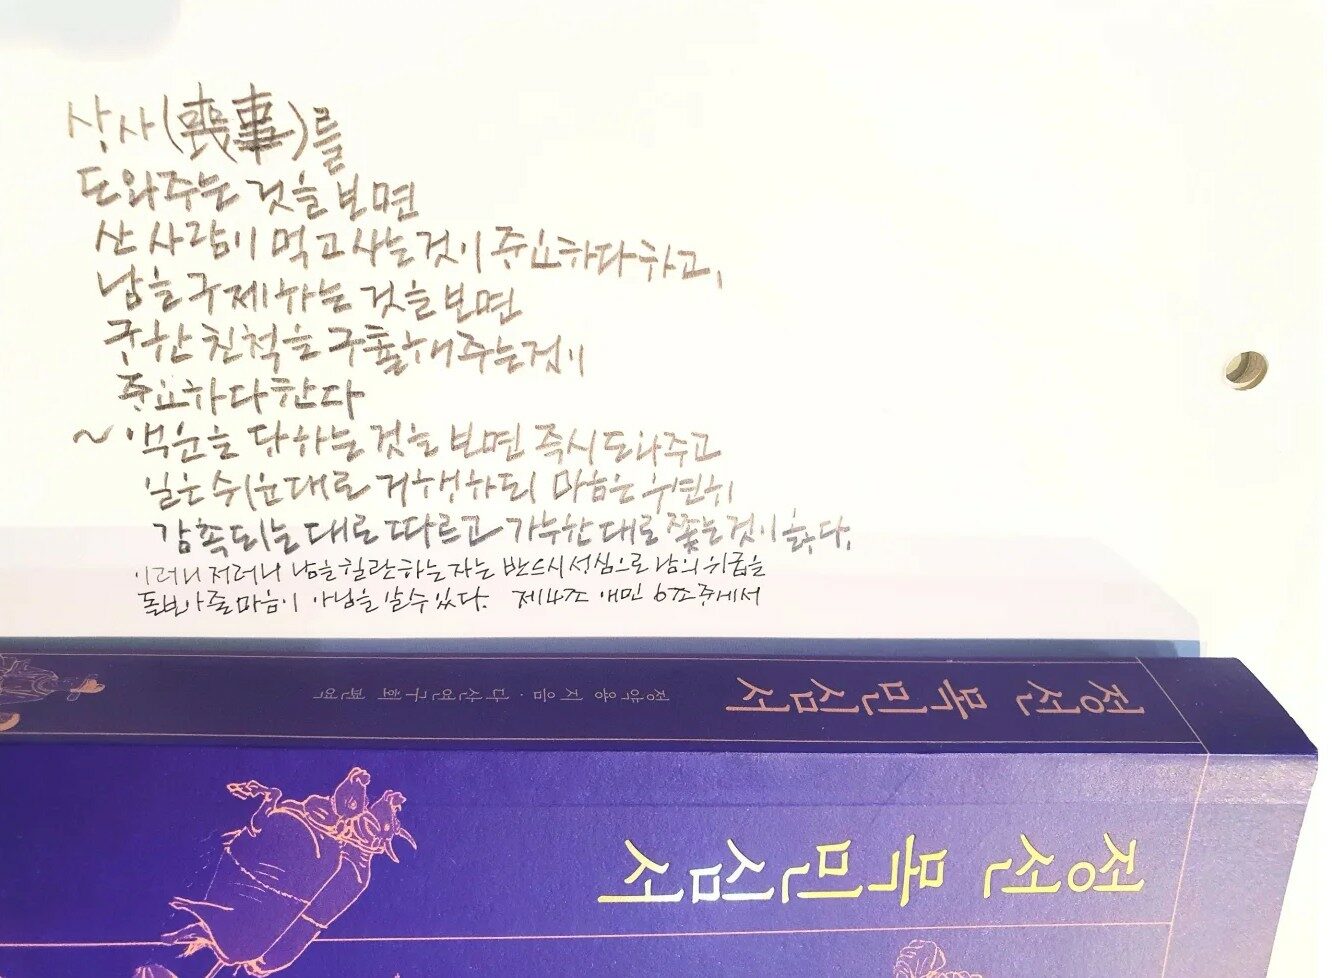 상사(喪事)를
도와주는 것을 보면
산 사람이 먹고 사는것이 중요하다 하고,
남을 구제하는 것을 보면
궁한 친척을 구휼해주는것이
중요하다 한다
~ 액운을 당하는 것을 보면 즉시 도와주고
일은 쉬운대로 거행하되 마음은 우연히
감촉되는대로 따르고 가능한대로 쫓는것이 옳다.
이러니 저러니 남을 힐난하는 자는 반드시 성심으로 남의 위급을
돌보아줄마음이 아님을 알수있다. 제4조 애민 6조 중에서
정선 목민심서 정약용 지음 · 다산연구회 편역
정선 목민심서